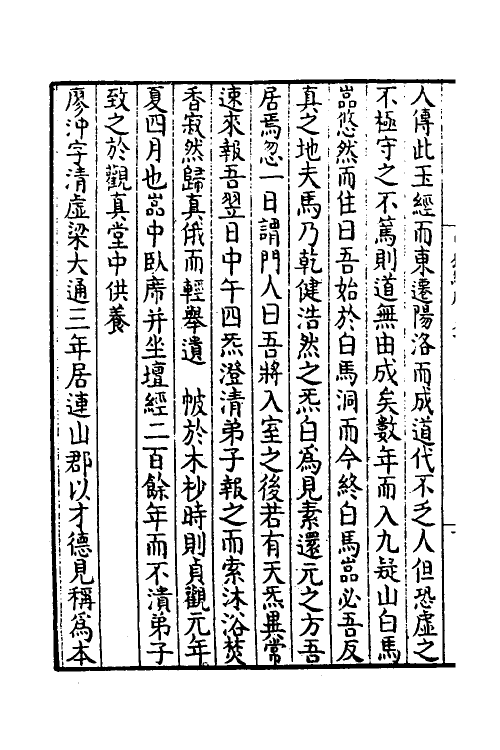 人傳此玉經而東遷陽洛而成道代不乏人但恐虛之
不極守之不篤則道無由成矣數年而入九疑山白馬
嵓悠然而住曰吾始於白馬洞而今終白馬嵓必吾反
真之地夫馬乃乾健浩然之炁白為見素還元之方吾
居焉忽一日謂門人曰吾將入室之後若有天炁異常
速來報吾翌日中午四炁澄清弟子報之而索沐浴焚
香寂然歸真俄而輕舉遺　帔於木杪時則貞觀元年
夏四月也嵓中臥席并坐壇經二百餘年而不潰弟子
致之於觀真堂中供養
廖沖字清虛梁大通三年居連山郡以才德見稱為本